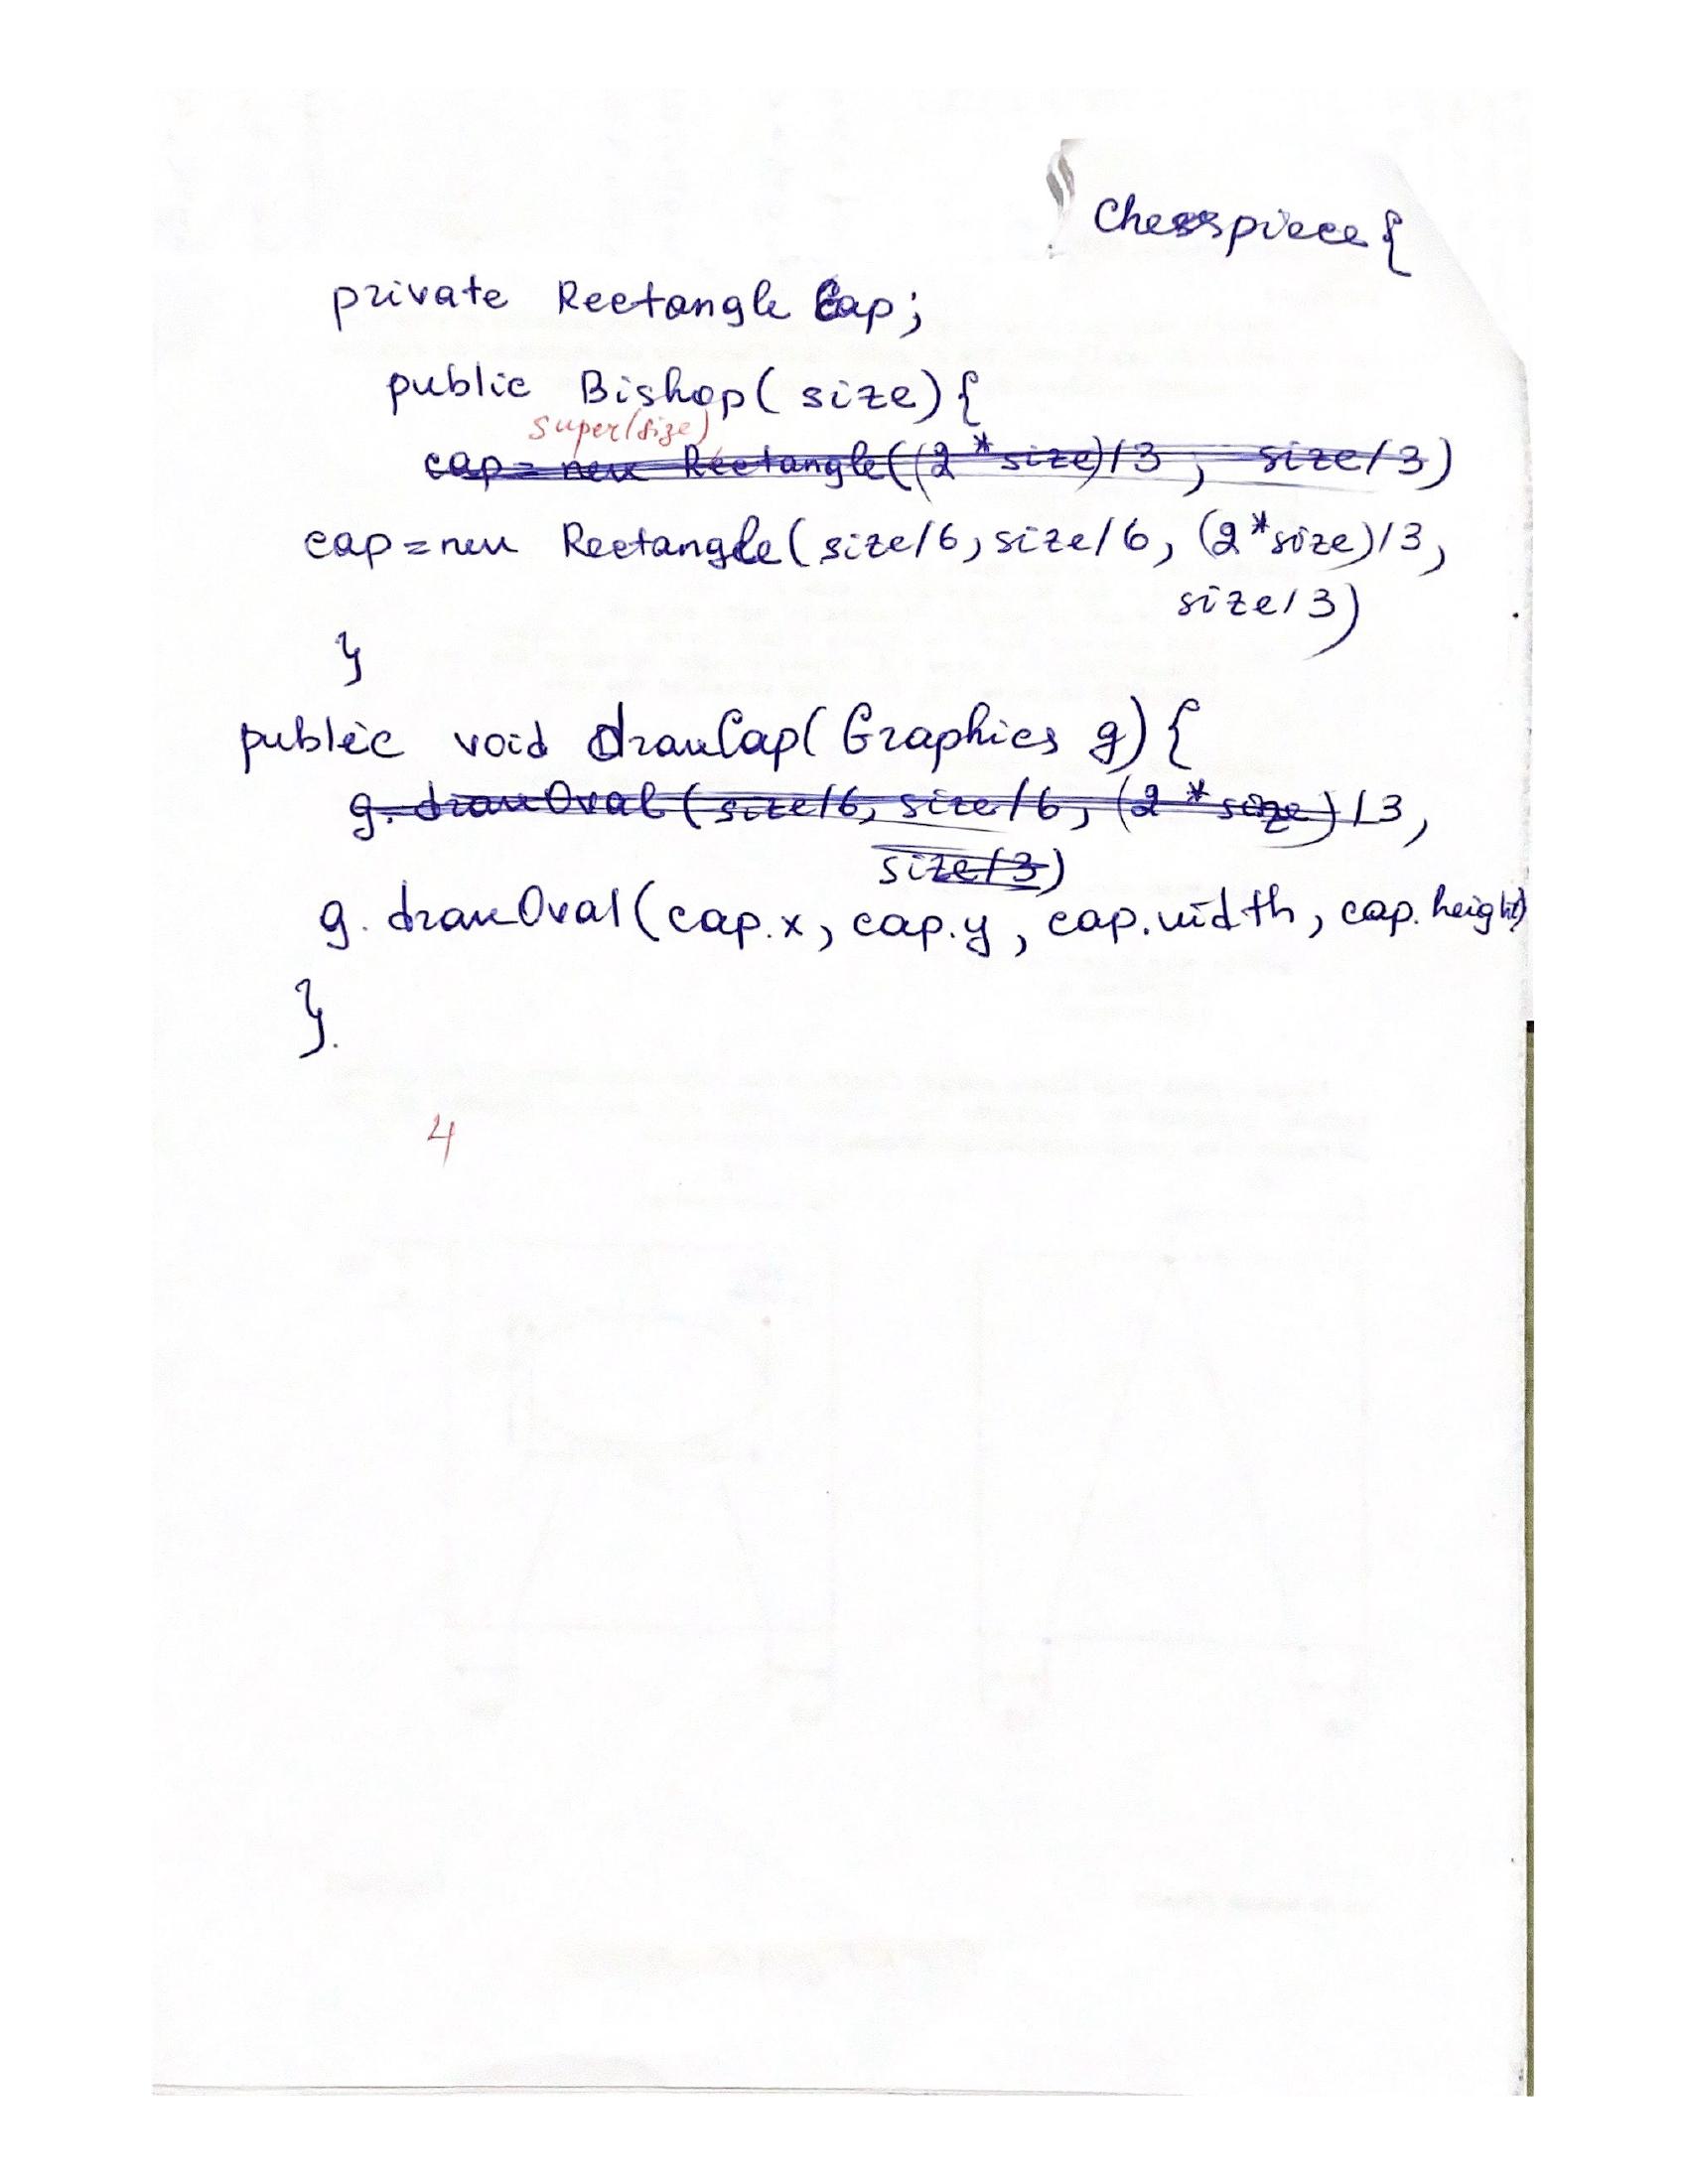 Chesspiece {
private Rectangle Cap;
public Bishop( size) {
super(size)
cap = new Rectangle((2*size)/3, size/3)
cap = new Rectangle( size/6, size/6, (2*size)/3,
size/3)
}
public void drawCap( Graphics g) {
g. drawOval ( size/6, size/6, (2 * size) /3,
size/3)
g. drawOval (cap.x, cap.y, cap.width, cap.height)
}.
4